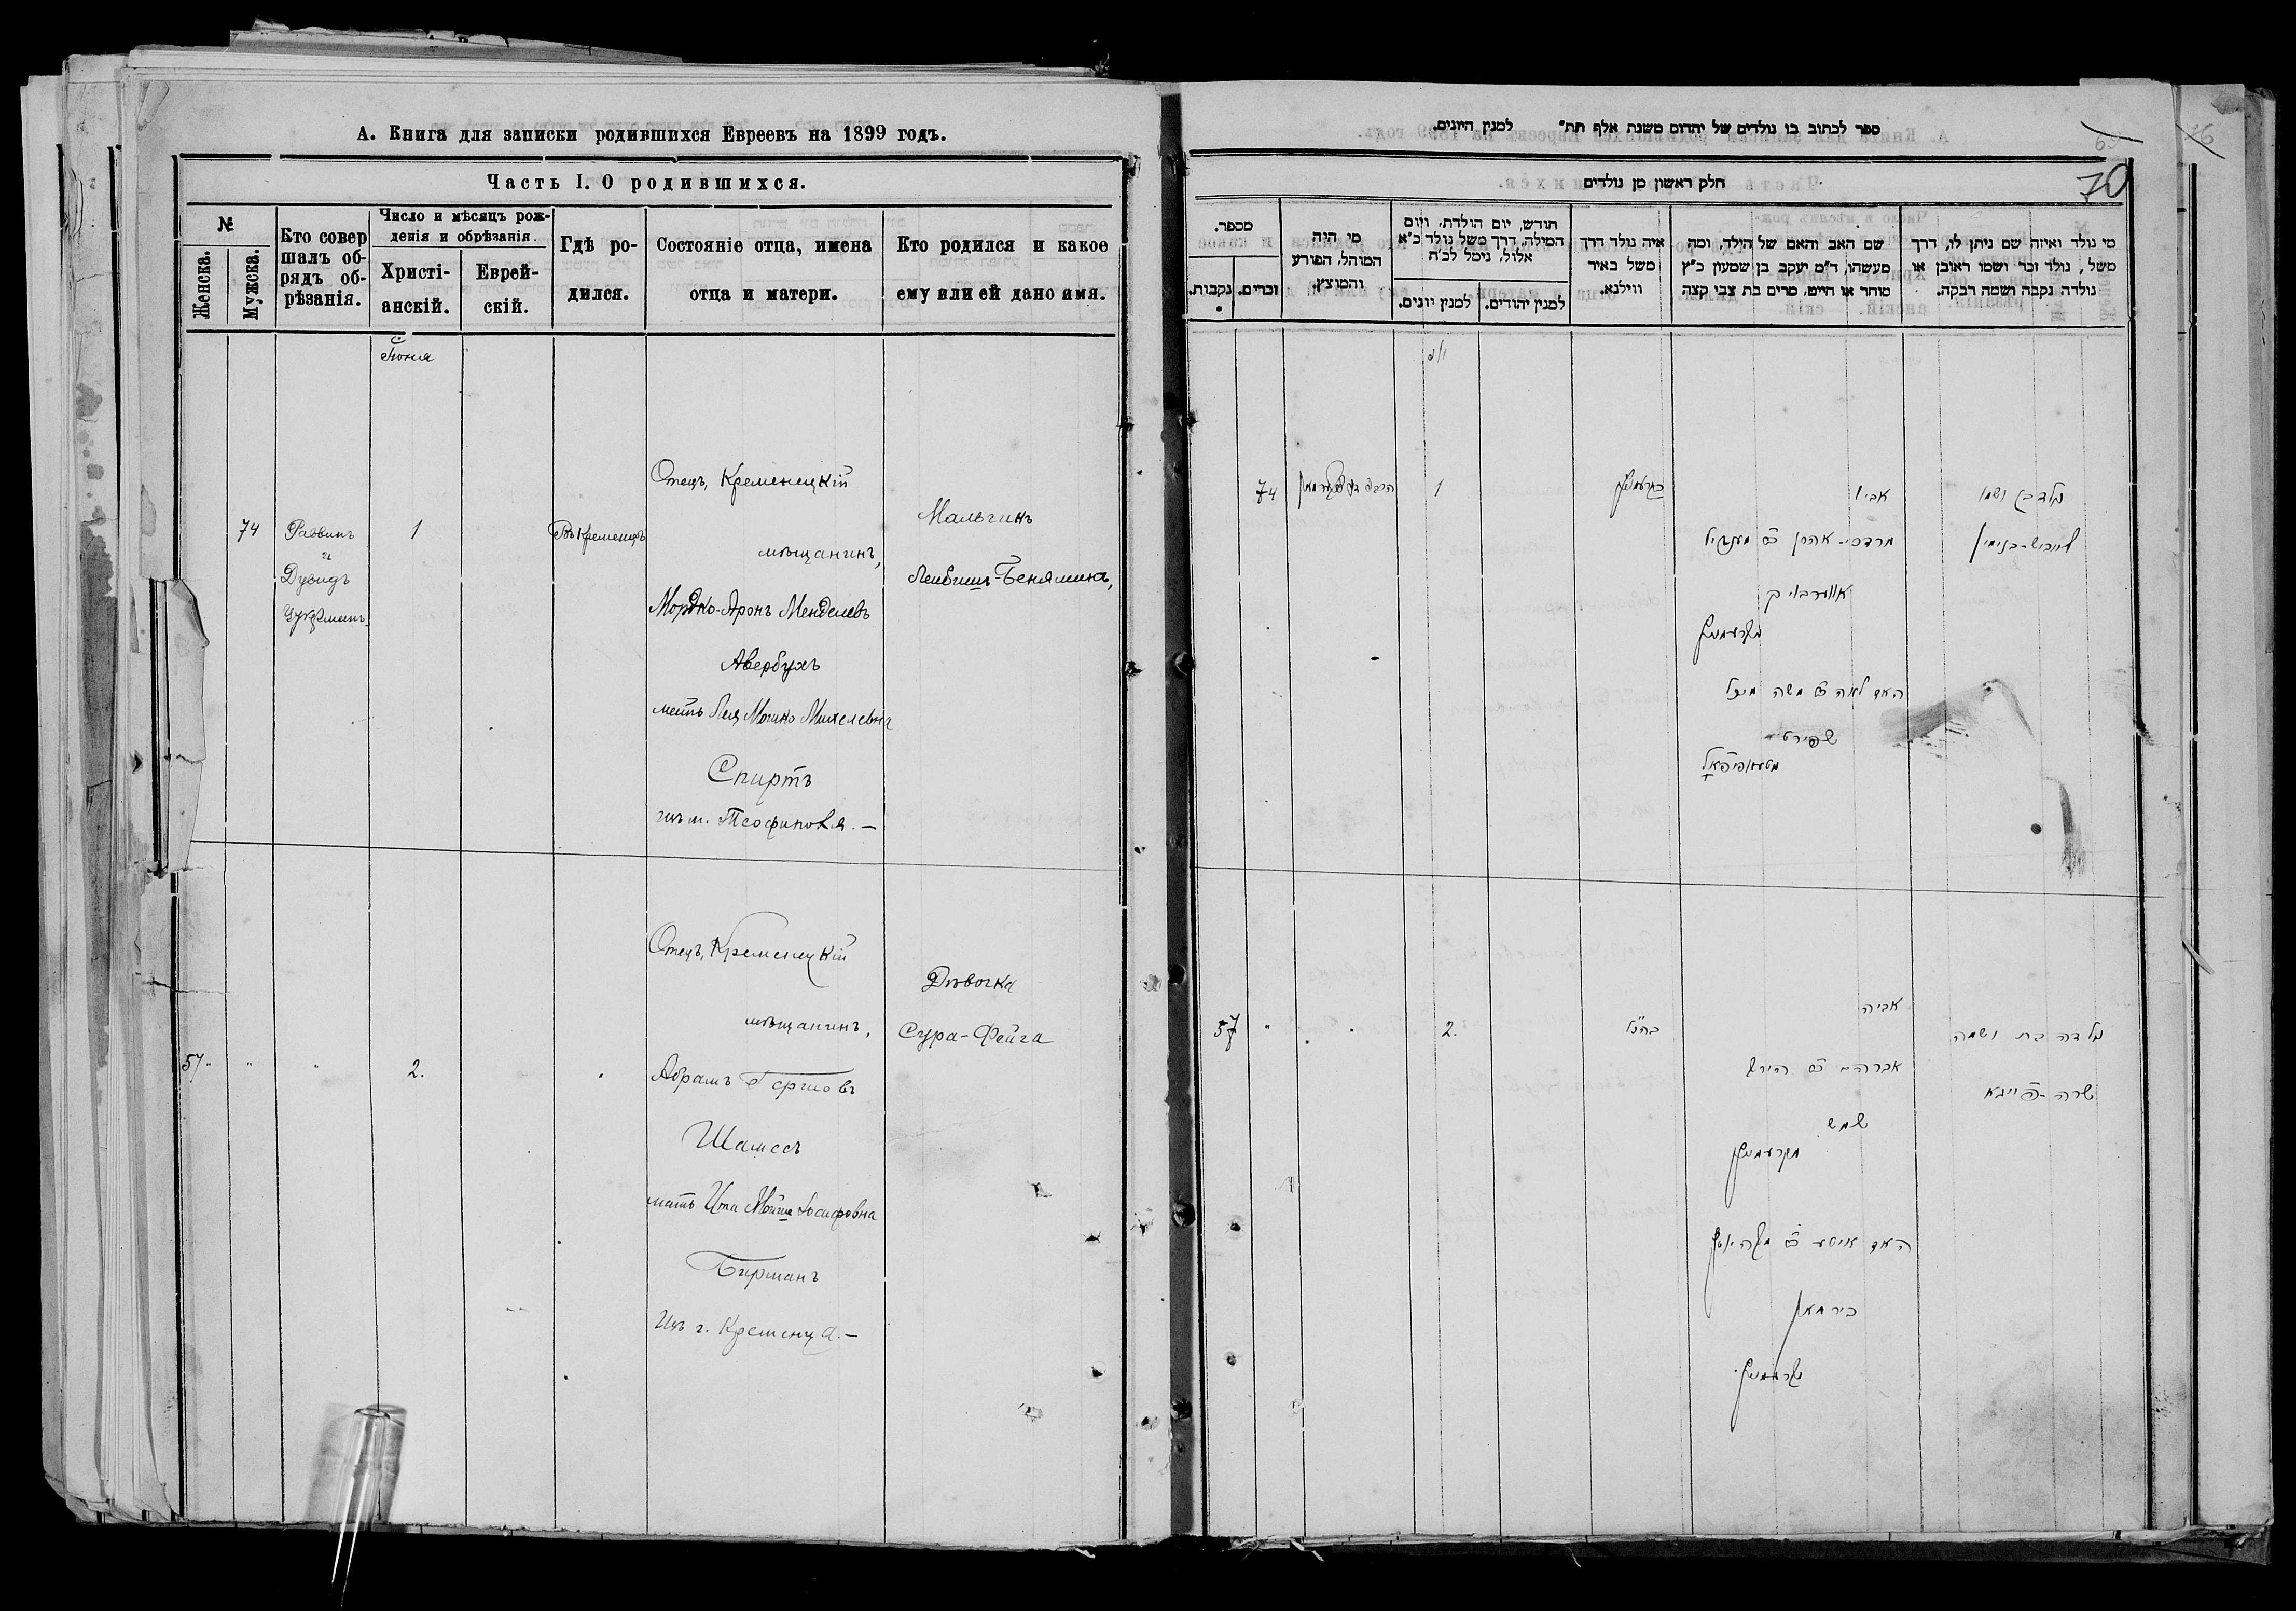 А. Книга для записки родившихся Евреевъ на 1899 годъ.
Часть I. О родившихся.
№
Женска.
Мужска.
Кто совер
шалъ об-
рядъ об-
рѣзанія.
Число и мѣсяцъ рож-
денія и обрѣзанія.
Христі-
анскій.
Еврей-
скій.
Гдѣ ро-
дился.
Состояніе отца, имена
отца и матери.
Кто родился и какое
ему или ей дано имя.
Іюня
74
Раввинъ
и
Дувидъ
1
Въ Кременцѣ
Отецъ, Кременецкій
мѣщанинъ,
Мордко-Аронъ Менделевъ
Авербухъ
мать Лея Мошко Михелевна
Спиртъ
изъ м. Теофиполя.—
Мальчикъ
Лейбишъ-Беняминъ,
57
"
"
2.
Отецъ, Кременецкій
мѣщанинъ,
Абрамъ Гершовъ
Шамесъ
мать Ита Мойше Іосифовна
Бирманъ
Изъ г. Кременца.—
Дѣвочка
Сура-Фейга
ספר לכתוב בו נולדים של יהדום משנת אלף תת״ למנין היונים.
חלק ראשון מן נולדים
70
מספר.
נקבות.
זכרים.
מי היה
המוהל, הפורע
והמוצץ.
חודש, יום הולדת, ויום
המילה, דרך משל נולד כ״א
אלול, נימל לכ״ח
למנין יונים.
למנין יהודים.
איה נולד דרך
משל באיר
ווילנא.
שם האב והאם של הילד, ומה
מעשהו, ד״מ יעקב בן שמעון כ״ץ
סוחר או חייט, מרים בת צבי קצה
מי נולד ואיזה שם ניתן לו, דרך
משל, נולד זכר ושמו ראובן או
נולדה נקבה ושמה רבקה.
74
1
בקרעמניץ
אביו
מרדכי-אהרן ב׳ מענדיל
אווערבוך
מקרעמניץ
האם לאה ב׳ משה מיכל
שפירט
נולד בן ושמו
לייביש-בנימין
57
"
"
2.
בהנ״ל
אביה
אברהם ב׳ הירש
שמש
מקרעמניץ
האם איטא ב׳ משה יוסף
בירמאן
מקרעמניץ
נולדה בת ושמה
שרה-פייגא